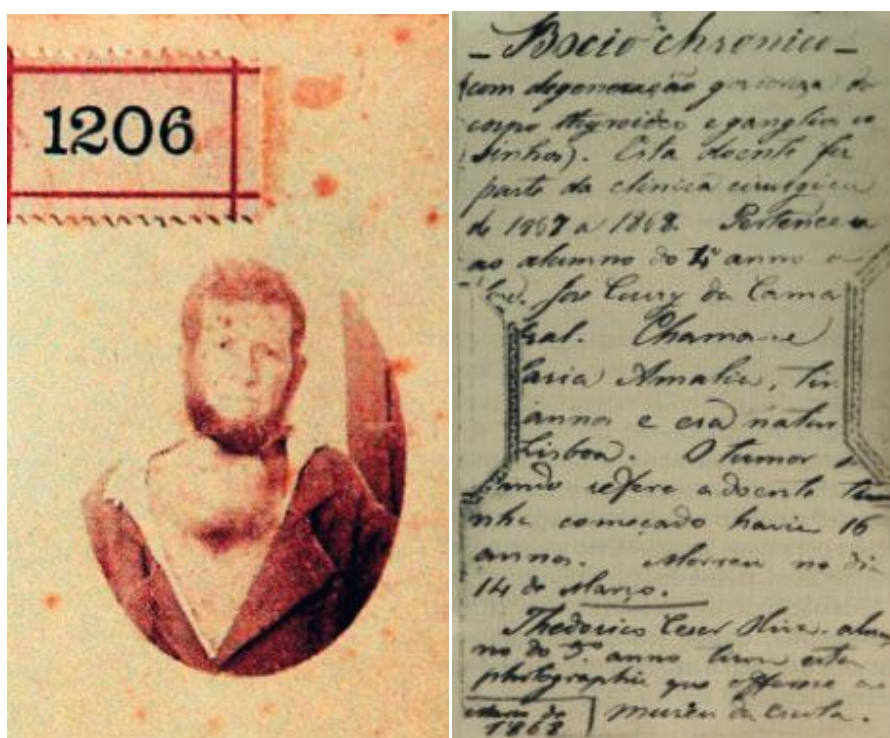 1206
– Bocio chronico –
(com degeneração do
corpo thyroideo e ganglios vi
sinhos). Esta doente fez
parte da clinica cirurgica
de 1867 a 1868. Pertenceu
ao alumno do 4º anno o
José Curry da Cama
bral. Chama-se
aria Amalia, tin
annos e era natur
Lisboa. O tumor
gundo refere a doente ti
nha começado havia 16
annos. Morreu no di
14 de Março.
Cesar alum
no do 5º anno tirou esta
photographia que offerece ao
museu da Escola.
1868